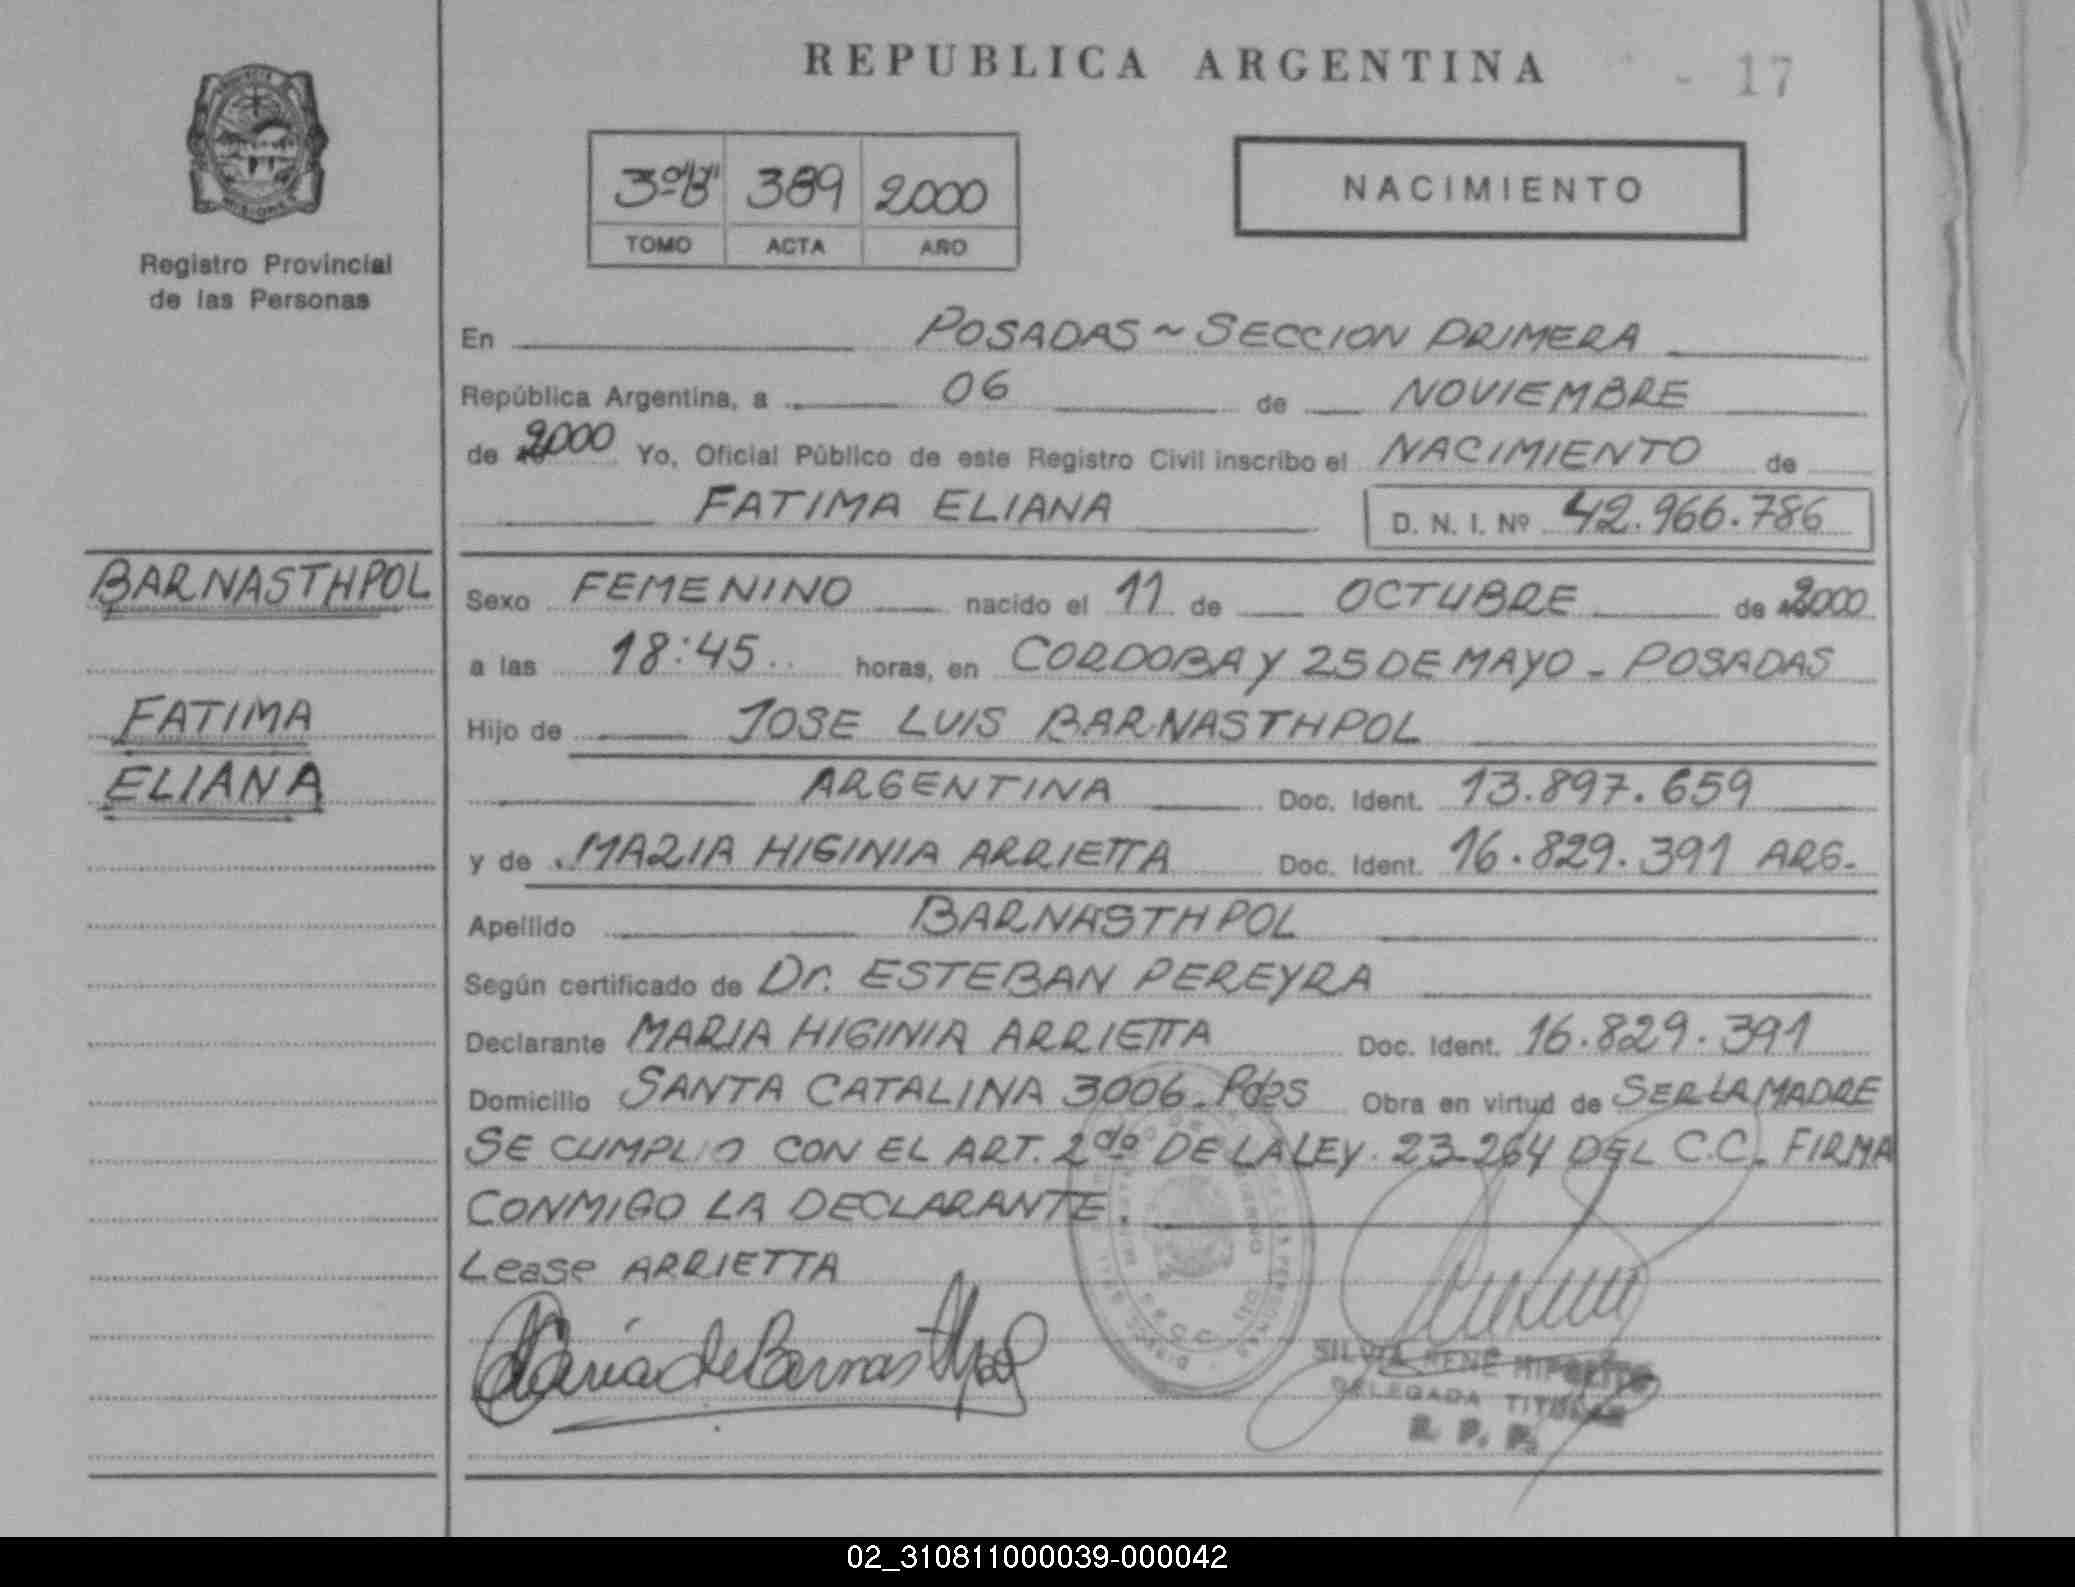 REPUBLICA ARGENTINA
- 17
Registro Provincial
de las Personas
3º "B" 389 2000
TOMO ACTA AÑO
NACIMIENTO
En POSADAS ~ SECCION PRIMERA
República Argentina, a 06 de NOVIEMBRE
de 2000 Yo, Oficial Público de este Registro Civil inscribo el NACIMIENTO de
FATIMA ELIANA D. N. I. Nº 42.966.786
BARNASTHPOL
FATIMA
ELIANA
Sexo FEMENINO nacido el 11 de OCTUBRE de 2000
a las 18:45 horas, en CORDOBA Y 25 DE MAYO - POSADAS
Hijo de JOSE LUIS BARNASTHPOL
ARGENTINA Doc. Ident. 13.897.659
y de MARIA HIGINIA ARRIETTA Doc. Ident. 16.829.391 ARG.
Apellido BARNASTHPOL
Según certificado de Dr. ESTEBAN PEREYRA
Declarante MARIA HIGINIA ARRIETTA Doc. Ident. 16.829.391
Domicilio SANTA CATALINA 3006 - Pdas Obra en virtud de SER LA MADRE
SE CUMPLIO CON EL ART. 2do DE LA LEY. 23.264 DEL C.C. FIRMA
CONMIGO LA DECLARANTE.
Lease ARRIETTA
Maria de Barnasthpol
SILVIA RENE HIPOLITO
DELEGADA TITULAR
R. P. P.
02_310811000039-000042